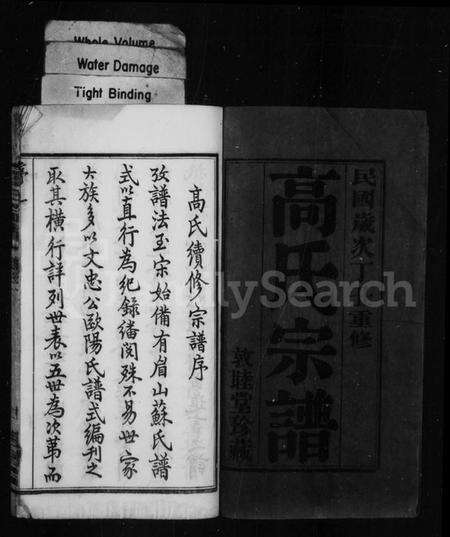 Whole Volume
Water Damage
Tight Binding
民國歲次丁
重修
高氏宗譜
敦睦堂珍藏
FamilySearch
高氏續修宗譜序
攷譜法至宋始備有眉山蘇氏譜
式以直行為紀錄繙閱殊不易世家
大族多以文忠公歐陽氏譜式編刊之
取其橫行詳列世表以五世為次第而